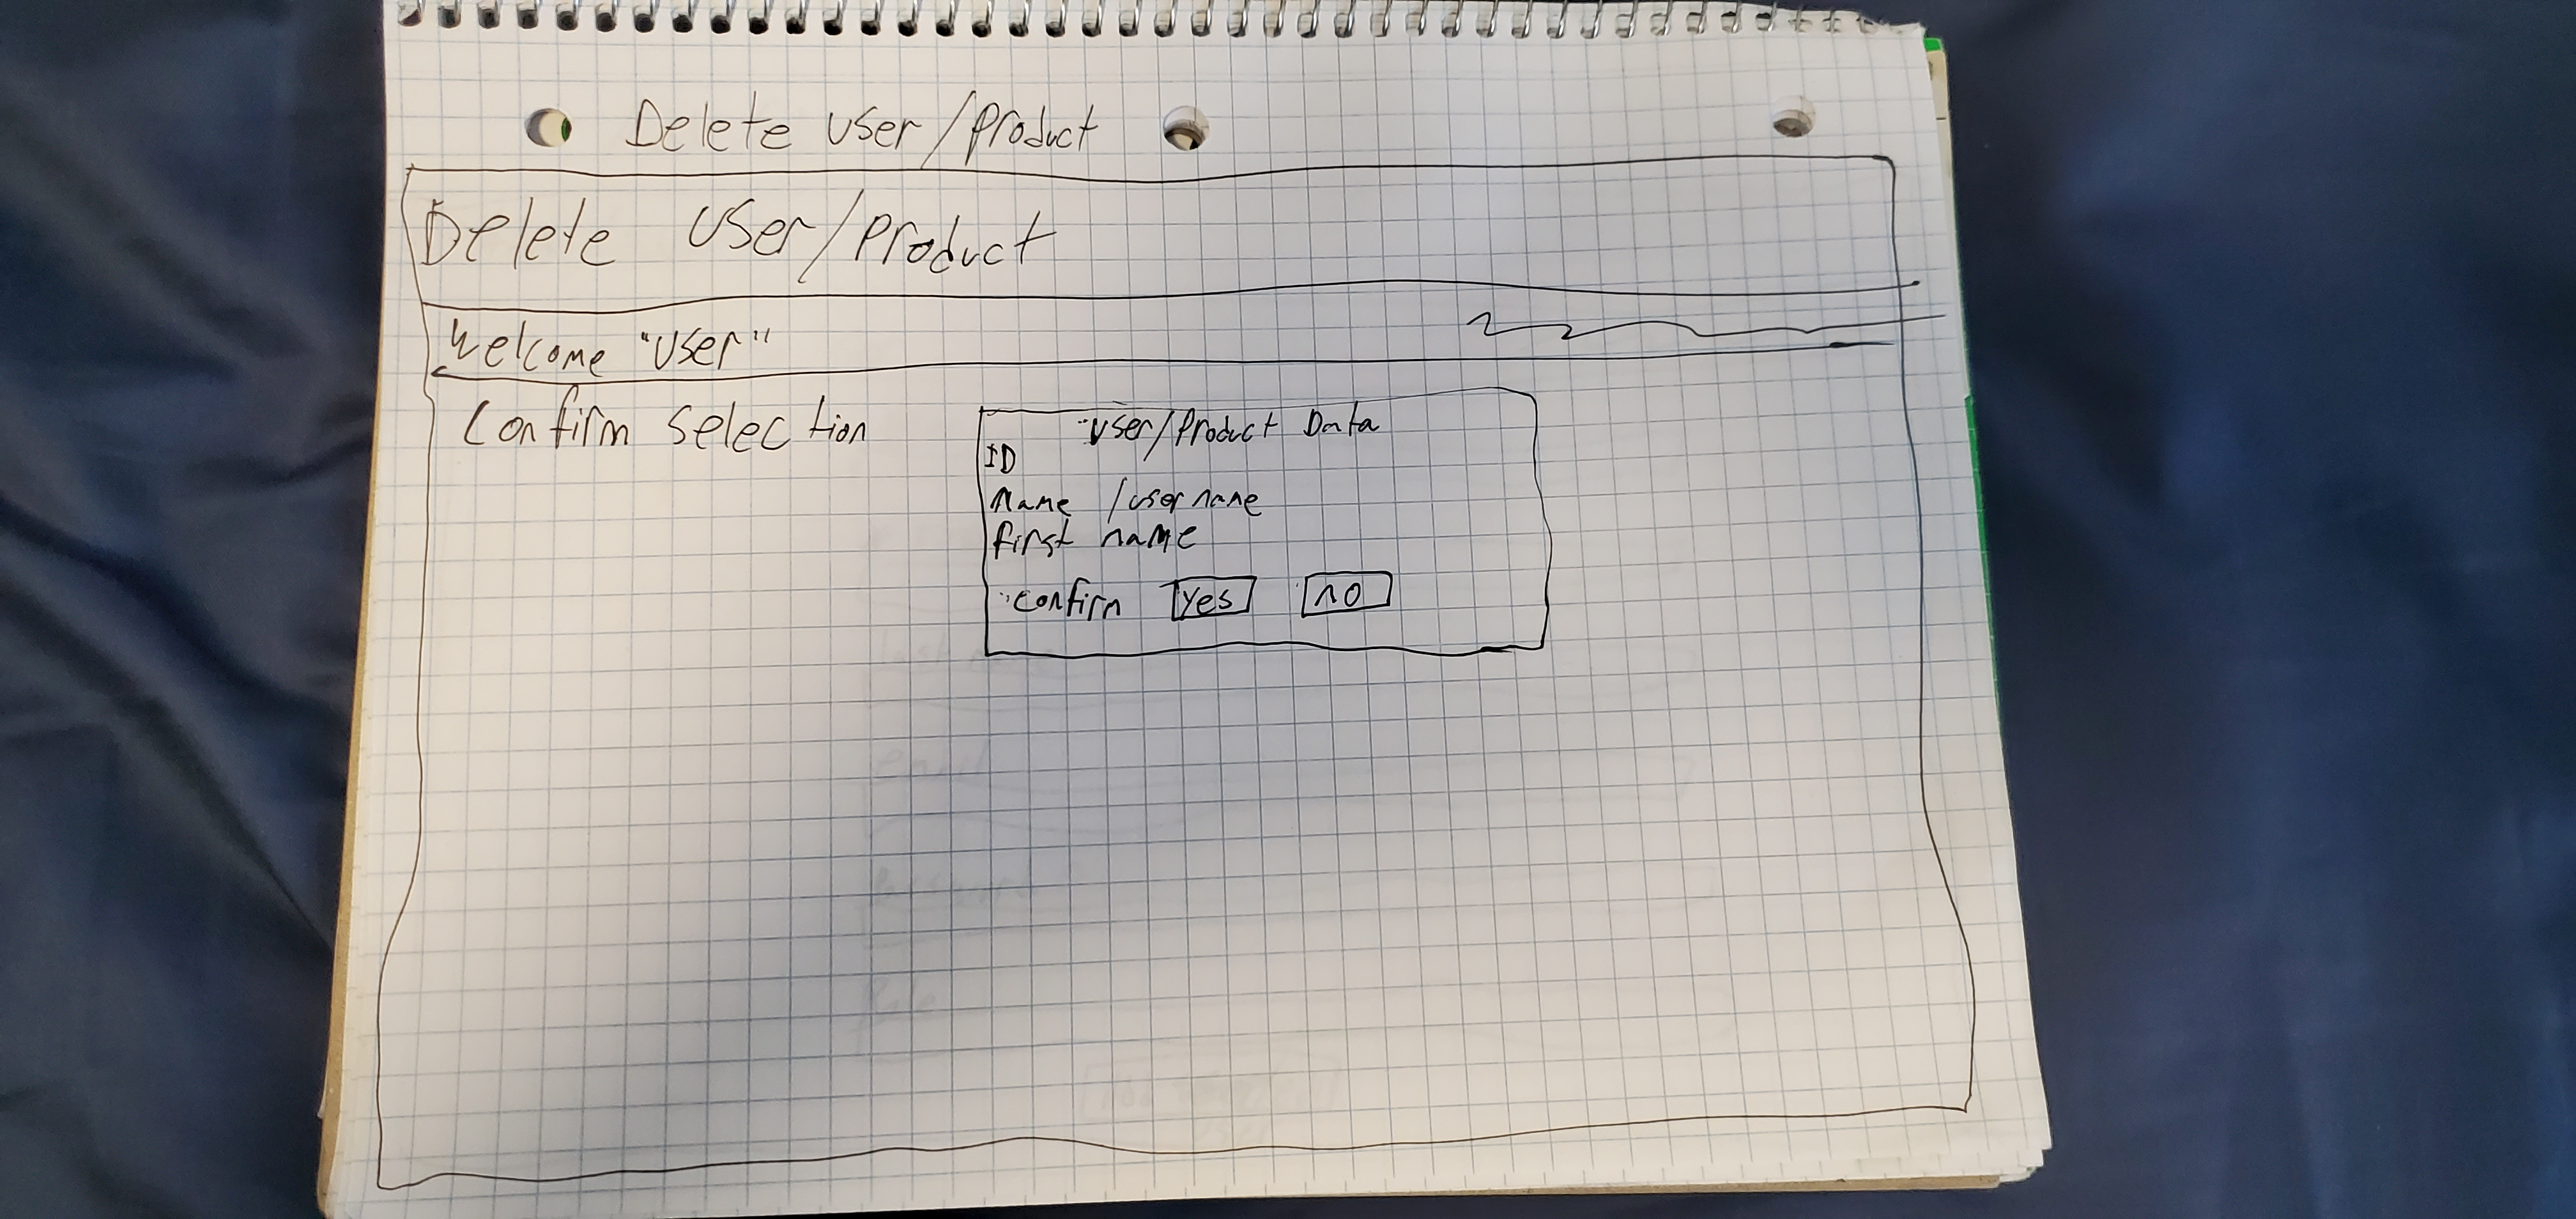 Delete user/Product
Delete User/Product
Welcome "User"
Confirm Selection
"User/Product Data
ID
name/username
first name
"Confirm Yes no